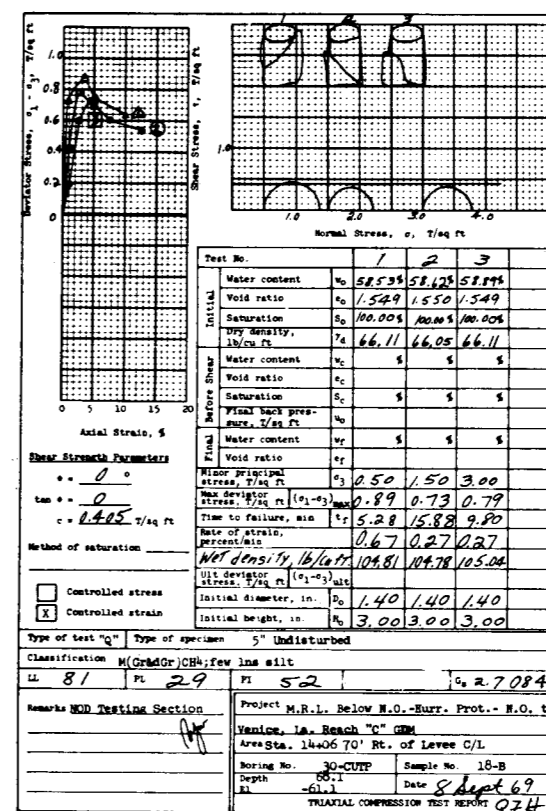 1 2 3
Deviator Stress, σ₁ - σ₃, T/sq ft
1.0
0.8
0.6
0.4
0.2
0 5 10 15 20
Axial Strain, %
Shear Stress, τ, T/sq ft
1.0
1.0 2.0 3.0 4.0
Normal Stress, σ, T/sq ft
Shear Strength Parameters
φ = 0 °
tan φ = 0
c = 0.405 T/sq ft
Method of saturation
Controlled stress
X Controlled strain
Test No. 1 2 3
Initial
Water content w₀ 58.53% 58.62% 58.89%
Void ratio e₀ 1.549 1.550 1.549
Saturation S₀ 100.00% 100.00% 100.00%
Dry density, lb/cu ft γd 66.11 66.05 66.11
Before Shear
Water content wc % % %
Void ratio ec
Saturation Sc % % %
Final back pressure, T/sq ft u₀
Final
Water content wf % % %
Void ratio ef
Minor principal stress, T/sq ft σ₃ 0.50 1.50 3.00
Max deviator stress, T/sq ft (σ₁-σ₃)max 0.89 0.73 0.79
Time to failure, min tf 5.28 15.88 9.80
Rate of strain, percent/min 0.67 0.27 0.27
Wet density, lb/cu ft 104.81 104.78 105.04
Ult deviator stress, T/sq ft (σ₁-σ₃)ult
Initial diameter, in. D₀ 1.40 1.40 1.40
Initial height, in. H₀ 3.00 3.00 3.00
Type of test "Q" Type of specimen 5" Undisturbed
Classification M(Gr&dGr)CH4;few lns silt
LL 81 PL 29 PI 52 Gs 2.7084
Remarks NOD Testing Section
Project M.R.L. Below N.O.-Hurr. Prot.- N.O. t
Venice, La. Reach "C" GDM
Area Sta. 14+06 70' Rt. of Levee C/L
Boring No. 30-CUTP Sample No. 18-B
Depth 68.1
El -61.1 Date 8 Sept 69
TRIAXIAL COMPRESSION TEST REPORT